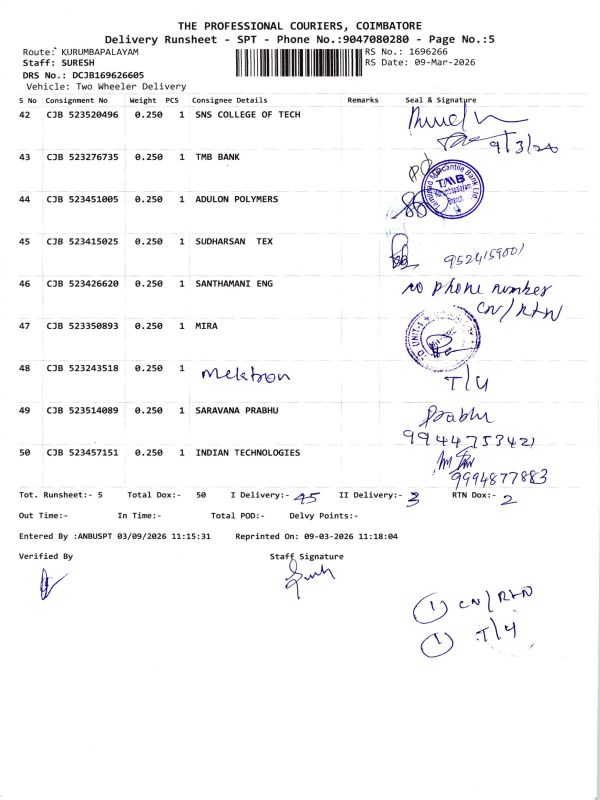 THE PROFESSIONAL COURIERS, COIMBATORE
Delivery Runsheet - SPT - Phone No.:9047080280 - Page No.:5
Route: KURUMBAPALAYAM
RS No.: 1696266
Staff: SURESH
RS Date: 09-Mar-2026
DRS No.: DCJB169626605
Vehicle: Two Wheeler Delivery
S No Consignment No Weight PCS Consignee Details Remarks Seal & Signature
42 CJB 523520496 0.250 1 SNS COLLEGE OF TECH
9/3/26
43 CJB 523276735 0.250 1 TMB BANK
Tamilnad Mercantile Bank Ltd.
TMB
Kurumbapalayam
Branch
44 CJB 523451005 0.250 1 ADULON POLYMERS
45 CJB 523415025 0.250 1 SUDHARSAN TEX 9524159001
46 CJB 523426620 0.250 1 SANTHAMANI ENG no phone number
CN/RTN
47 CJB 523350893 0.250 1 MIRA
UNIT-1
48 CJB 523243518 0.250 1 Mektron T/4
49 CJB 523514089 0.250 1 SARAVANA PRABHU Prabhu
9944753421
50 CJB 523457151 0.250 1 INDIAN TECHNOLOGIES
9994877883
Tot. Runsheet:- 5 Total Dox:- 50 I Delivery:- 45 II Delivery:- 3 RTN Dox:- 2
Out Time:- In Time:- Total POD:- Delvy Points:-
Entered By :ANBUSPT 03/09/2026 11:15:31 Reprinted On: 09-03-2026 11:18:04
Verified By Staff Signature
1 CN/RTN
1 T/4